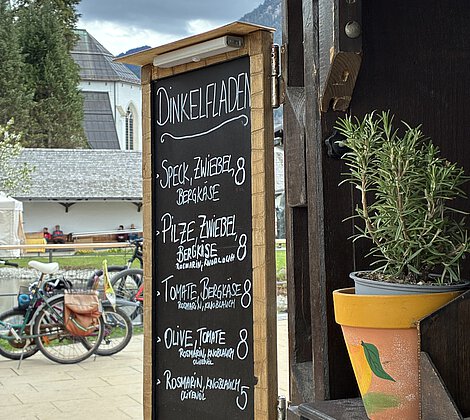 DINKELFLADEN
> SPECK, ZWIEBEL, 8
BERGKÄSE
> PILZE, ZWIEBEL,
BERGKÄSE 8
ROSMARIN, KNOBLAUCH
> TOMATE, BERGKÄSE 8
ROSMARIN, KNOBLAUCH
> OLIVE, TOMATE 8
ROSMARIN, KNOBLAUCH
OLIVENÖL
> ROSMARIN, KNOBLAUCH 5
OLIVENÖL